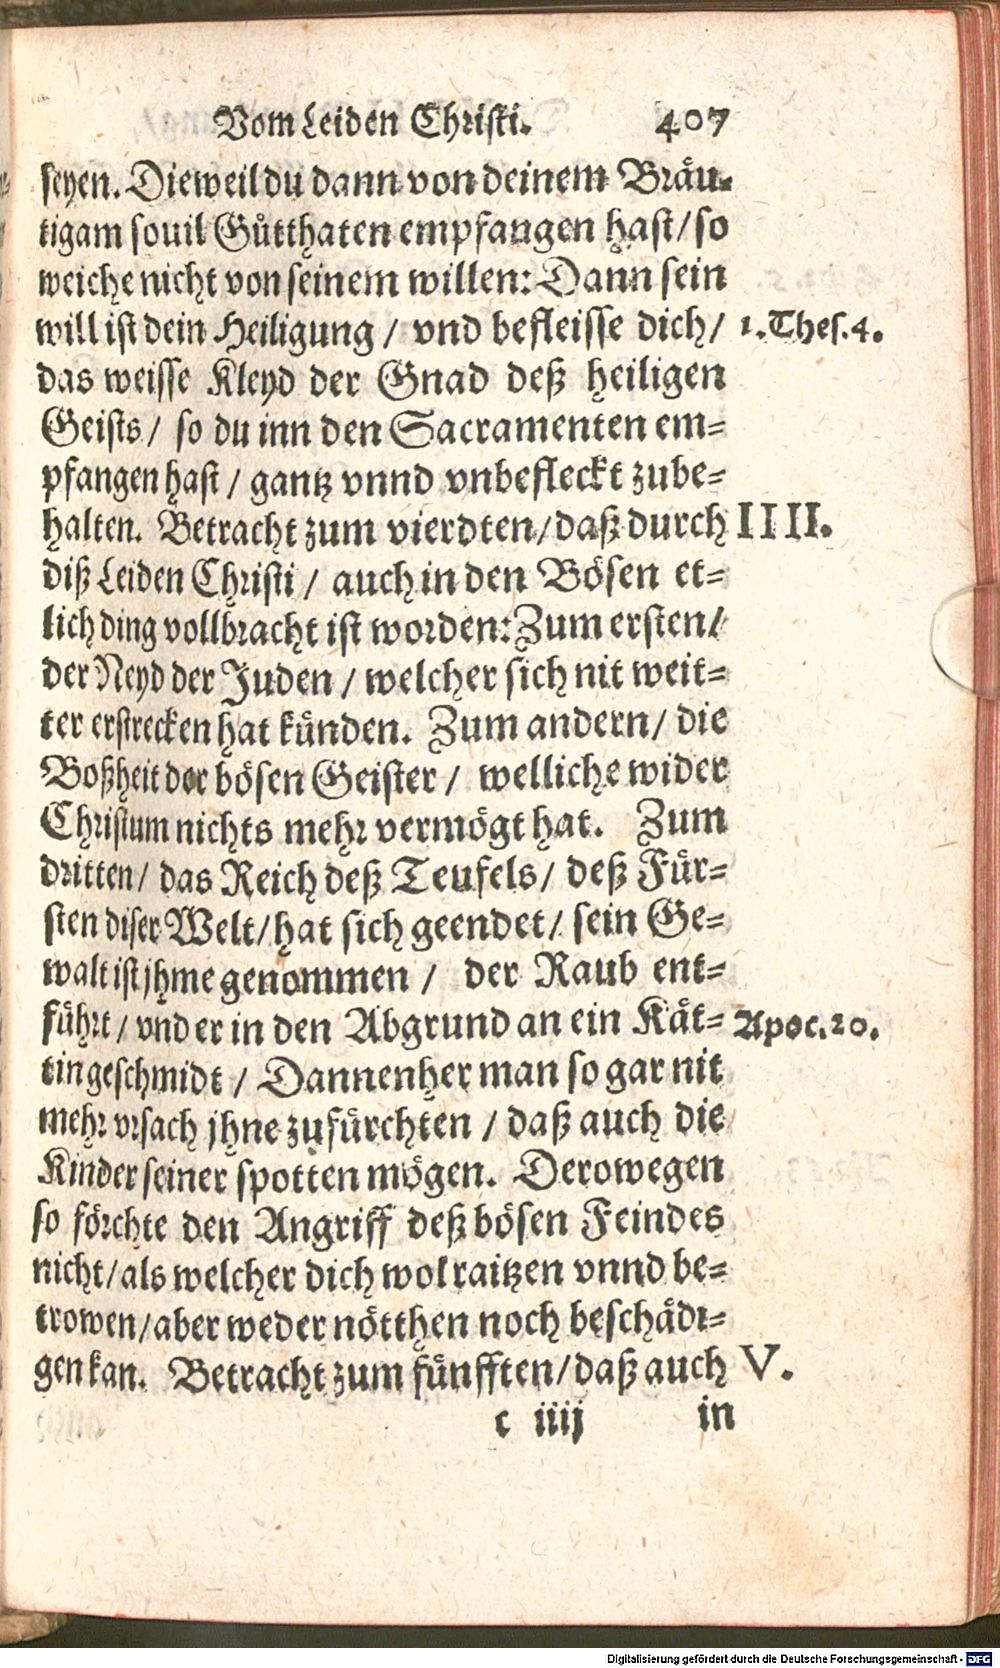 Vom Leiden Christi. 407
seyen. Dieweil du dann von deinem Bräu-
tigam souil Gůtthaten empfangen hast/ so
weiche nicht von seinem willen: Dann sein
will ist dein Heiligung / vnd befleisse dich/ 1. Thes. 4.
das weisse Kleyd der Gnad deß heiligen
Geists/ so du inn den Sacramenten em-
pfangen hast / gantz vnnd vnbefleckt zube-
halten. Betracht zum vierdten/ daß durch IIII.
diß Leiden Christi / auch in den Bösen et-
lich ding vollbracht ist worden: Zum ersten/
der Neyd der Juden / welcher sich nit weit-
ter erstrecken hat künden. Zum andern/ die
Boßheit der bösen Geister / welliche wider
Christum nichts mehr vermögt hat. Zum
dritten/ das Reich deß Teufels/ deß Für-
sten diser Welt/ hat sich geendet/ sein Ge-
walt ist jhme genommen / der Raub ent-
führt/ vnd er in den Abgrund an ein Kät- Apoc. 20.
tin geschmidt / Dannenher man so gar nit
mehr vrsach jhne zufürchten / daß auch die
Kinder seiner spotten mögen. Derowegen
so förchte den Angriff deß bösen Feindes
nicht/ als welcher dich wol raitzen vnnd be-
trowen/ aber weder nötthen noch beschädi-
gen kan. Betracht zum fünfften/ daß auch V.
c iiij in
Digitalisierung gefördert durch die Deutsche Forschungsgemeinschaft - DFG